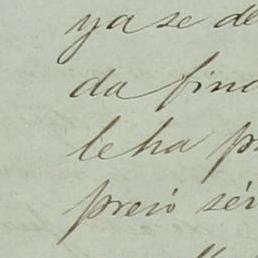 ya se de
da fin
le ha p
preió sér